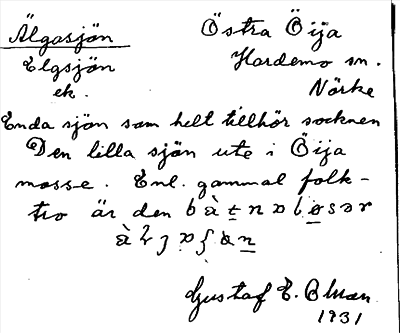 Älgasjön
Östra Öija
Elgsjön
Hardemo sn.
ek.
Närke
Enda sjön som helt tillhör socknen
Den lilla sjön ute i Öija
mosse. Enl. gammal folk-
tro är den
Gustaf E.
1931